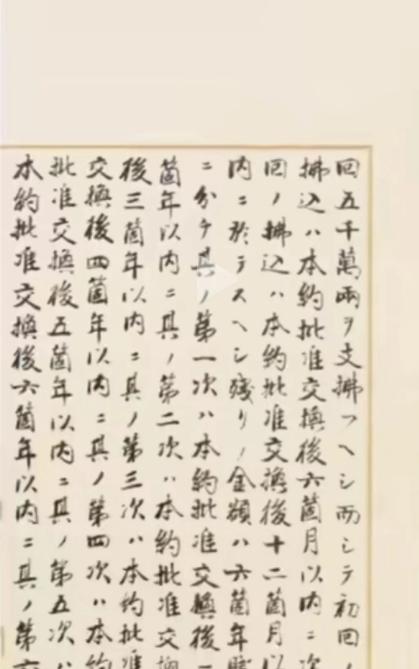 回五千萬兩ヲ支拂フヘシ而シテ初回
拂込ハ本約批准交換後六箇月以内ニ次
回ノ拂込ハ本約批准交換後十二箇月以
内ニ於テスヘシ殘リノ金額ハ六箇年賦
ニ分チ其ノ第一次ハ本約批准交換後一
箇年以内ニ其ノ第二次ハ本約批准交換
後三箇年以内ニ其ノ第三次ハ本約批准
交換後四箇年以内ニ其ノ第四次ハ本約
批准交換後五箇年以内ニ其ノ第五次ハ
本約批准交換後六箇年以内ニ其ノ第六